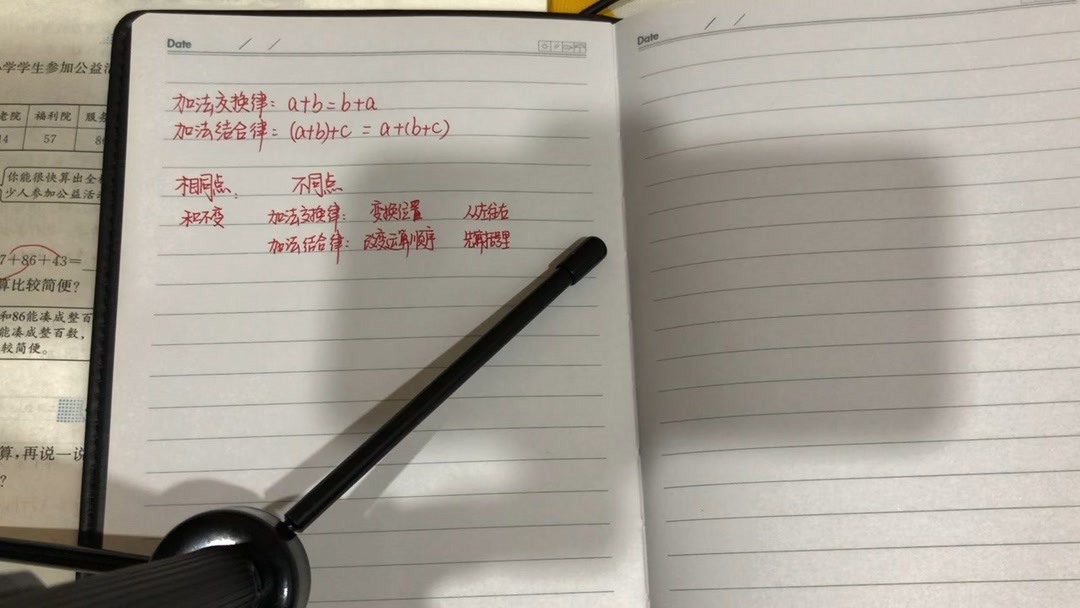 小学学生参加公益活
老院 福利院 服务
14 57 86
你能很快算出全
少人参加公益活
7+86+43=
算比较简便?
和86能凑成整百
能凑成整百数,
较简便。
算,再说一说
?
Date / /
加法交换律: a+b=b+a
加法结合律: (a+b)+c = a+(b+c)
相同点、 不同点
和不变 加法交换律: 变换位置 从左往右
加法结合律: 改变运算顺序 先算括号里
Date / /